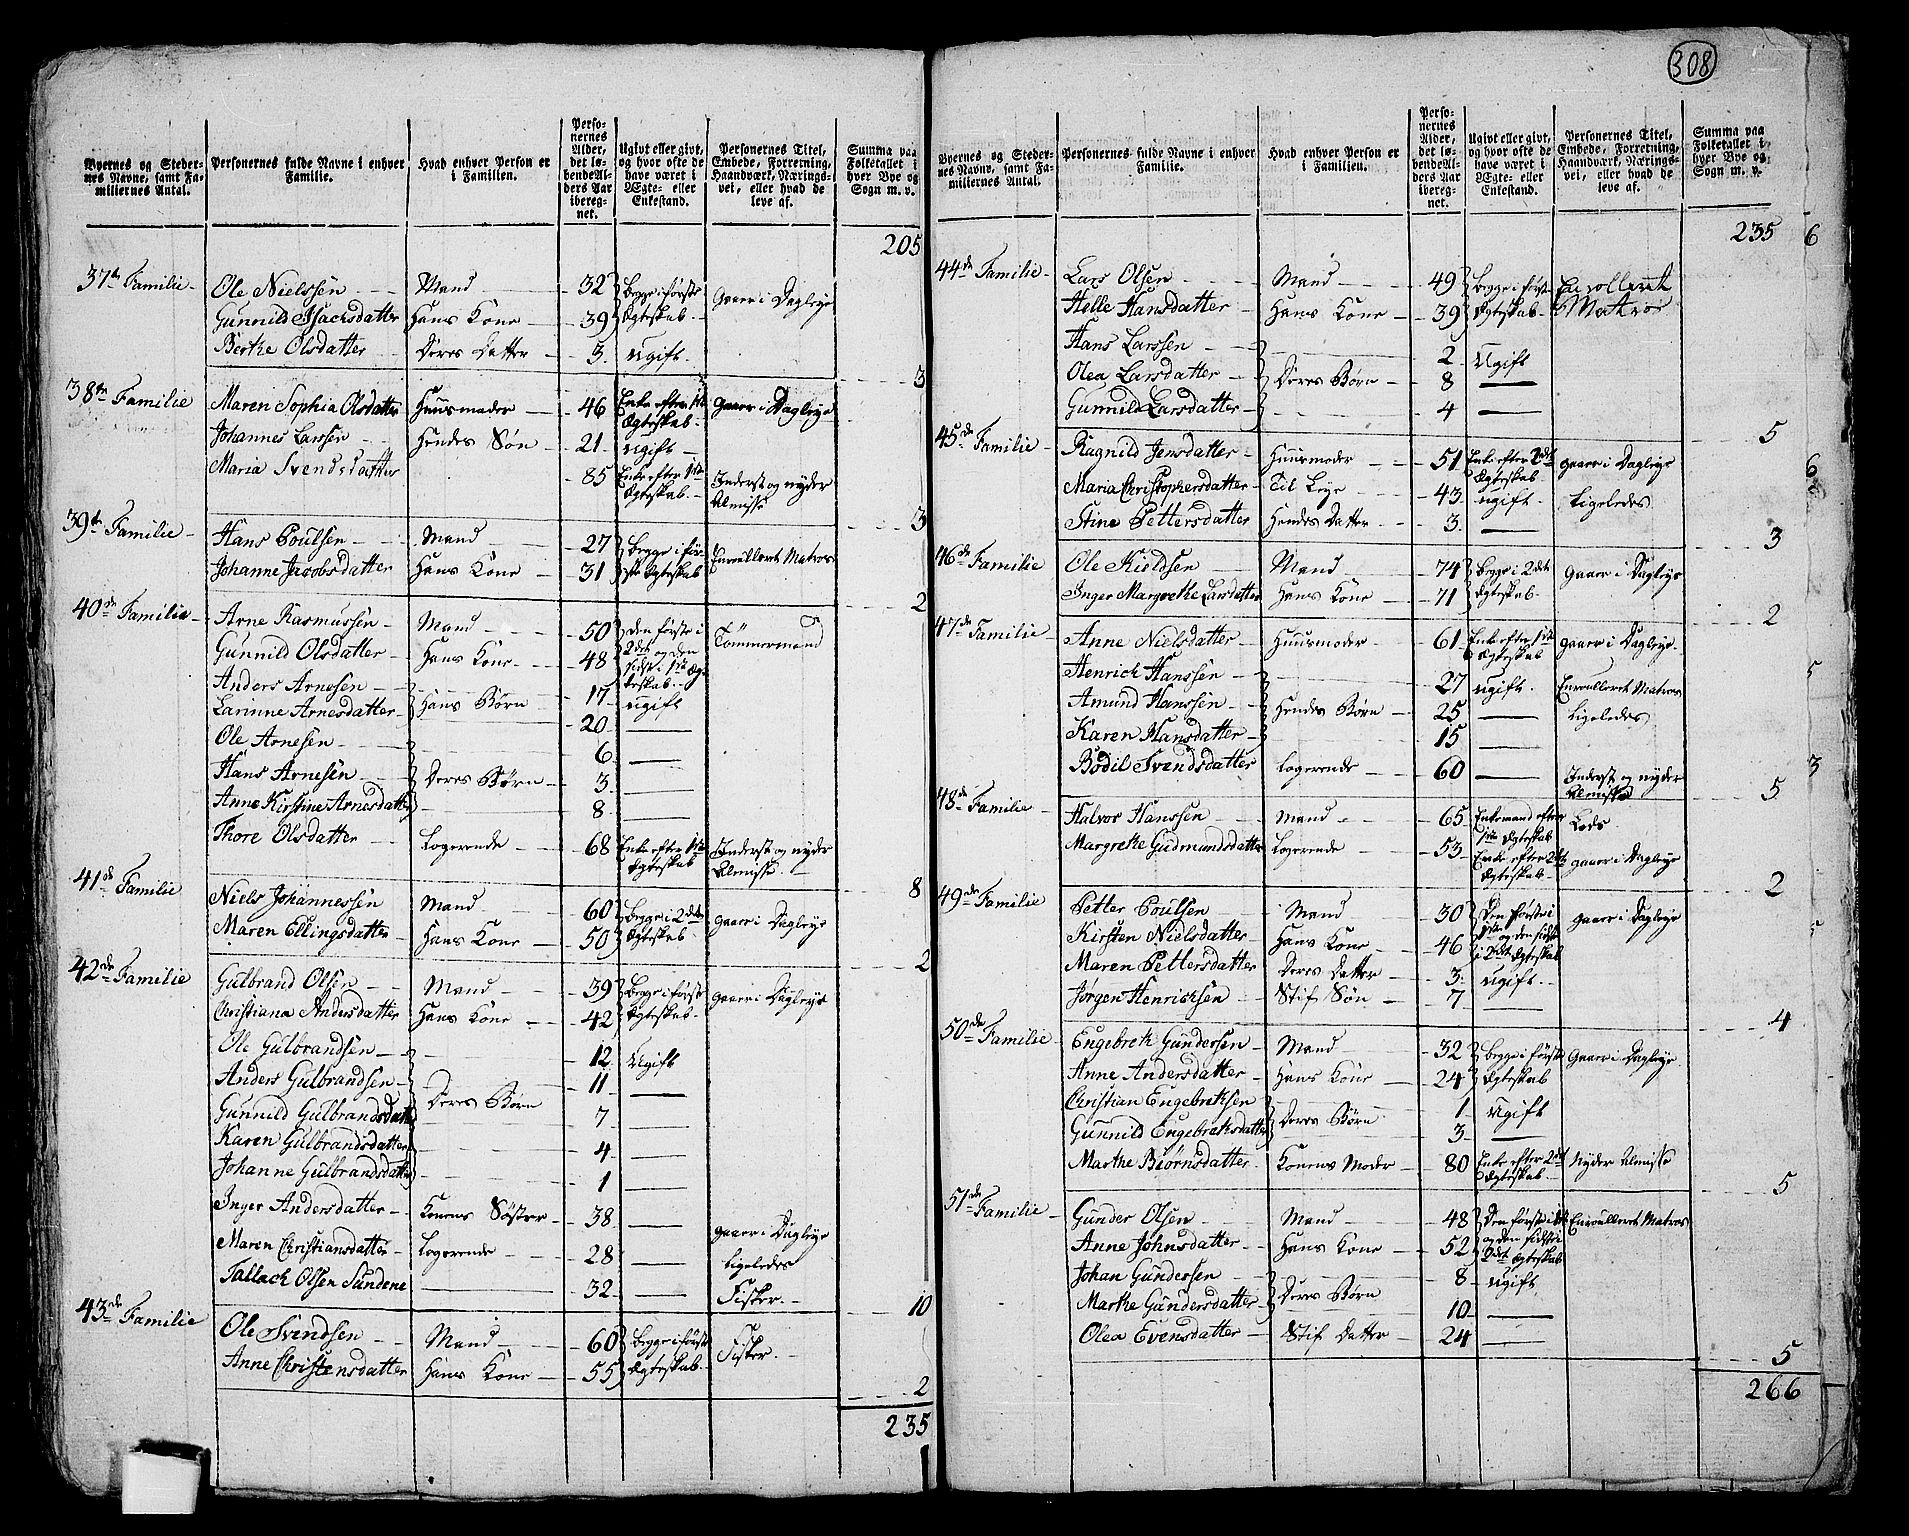 308
Byernes og Steder-
nes Navne, samt Fa-
miliernes Antal.
Personernes fulde Navne i enhver
Familie.
Hvad enhver Person er
i Familien.
Perso-
nernes
Alder,
det lø-
bende Al-
ders Aar
ibereg-
net.
Ugivt eller givt,
og hvor ofte de
have været i
Ægte- eller
Enkestand.
Personernes Titel,
Embede, Forretning,
Haandværk, Nærings-
vei, eller hvad de
leve af.
Summa paa
Folketallet i
hver Bye og
Sogn m. v.
205
37te Familie - Ole Nielssen Mand 32 begge i første gaaer i Dagleye
Gunnild Isachsdatter Hans Kone 39 Ægteskab
Berthe Olsdatter Deres Datter 3 ugift
3
38te Familie Maren Sophia Olsdatter Huusmoder 46 Enke efter 1ste gaaer i Dagleye
Ægteskab
Johannes Larssen Hendes Søn 21 ugift
Maria Svendsdatter 85 Enke efter 1ste Inderst og nyder
Ægteskab Almisse
3
39te Familie Hans Poulsen Mand 27 begge i før- Enroulleret Matros
Johanne Jacobsdatter Hans Kone 31 ste Ægteskab
2
40de Familie Arne Rasmussen Mand 50 den første i Tømmermand
Gunnild Olsdatter Hans Kone 48 2det og den
sidst. i 1ste Æg-
teskab
Anders Arnesen 17 ugift
Larinne Arnesdatter Hans Børn 20
Ole Arnesen 6
Hans Arnesen Deres Børn 3
Anne Kirstine Arnesdatter 8
Thore Olsdatter Logerende 68 Enke efter 1ste Inderst og nyder
Ægteskab Almisse
8
41de Familie Niels Johannessen Mand 60 begge i 2det gaaer i Dagleye
Maren Ellingsdatter Hans Kone 50 Ægteskab
2
42de Familie Gulbrand Olsen Mand 39 begge i første gaaer i Dagleye
Christiana Andersdatter Hans Kone 42 Ægteskab
Ole Gulbrandsen 12 Ugift
Anders Gulbrandsen 11
Gunnild Gulbrandsdatter Deres Børn 7
Karen Gulbrandsdatter 4
Johanne Gulbrandsdatter 1
Inger Andersdatter Konens Søster 38 gaaer i Dagleye
Maren Christiansdatter Logerende 28 Ligeledes
Tallach Olsen Sundene 32 Fisker
10
43de Familie Ole Svendsen Mand 60 begge i første Fisker
Anne Christensdatter Hans Kone 55 Ægteskab
2
235
Byernes og Steder-
nes Navne, samt Fa-
miliernes Antal.
Personernes fulde Navne i enhver
Familie.
Hvad enhver Person er
i Familien.
Perso-
nernes
Alder,
det lø-
bende Al-
ders Aar
ibereg-
net.
Ugivt eller givt,
og hvor ofte de
have været i
Ægte- eller
Enkestand.
Personernes Titel,
Embede, Forretning,
Haandværk, Nærings-
vei, eller hvad de
leve af.
Summa paa
Folketallet i
hver Bye og
Sogn m. v.
235
44de Familie Lars Olsen Mand 49 begge i først Enrolleret
Helle Hansdatter Hans Kone 39 Ægteskab Matros
Hans Larssen 2 Ugift
Olea Larsdatter Deres Børn 8
Gunnild Larsdatter 4
5
45de Familie Ragnild Jensdatter Huusmoder 51 Enke efter 2det gaaer i Dagleye
Ægteskab
Maria Christophersdatter Til Leye 43 ugift Ligeledes
Stine Pettersdatter Hendes Datter 3
3
46de Familie Ole Kieldsen Mand 74 begge i 2det gaaer i Dagleye
Inger Margrethe Larsdatter Hans Kone 71 Ægteskab
2
47de Familie Anne Nielsdatter Huusmoder 61 Enke efter 1ste gaaer i Dagleye
Ægteskab
Henrich Hanssen 27 ugift Enroulleret Matros
Amund Hanssen Hendes Børn 25 Ligeledes
Karen Hansdatter 15
Bodil Svendsdatter Logerende 60 Inderst og nyder
Almisse
5
48de Familie Halvor Hanssen Mand 65 Enkemand efter Lods
1ste Ægteskab
Margrethe Gudmundsdatter Logerende 53 Enke efter 2det gaaer i Dagleye
Ægteskab
2
49de Familie Petter Poulsen Mand 30 Den første i gaaer i Dagleye
Kirsten Nielsdatter Hans Kone 46 1ste og den sidste
i 2det Ægteskab
Maren Pettersdatter Deres Datter 3 ugift
Jørgen Henrichsen Stif Søn 7
4
50de Familie Engebreth Gundersen Mand 32 begge i første Gaaer i Dagleye
Anne Andersdatter Hans Kone 24 Ægteskab
Christian Engebrethsen 1 Ugift
Gunnild Engebrethsdatter Deres Børn 3
Marthe Biørnsdatter Konens Moder 80 Enke efter 2det Nyder Almisse
Ægteskab
5
51de Familie Gunder Olsen Mand 48 Den første i 1ste Enroulleret Matros
Anne Johnsdatter Hans Kone 52 og den sidste i
2det Ægteskab
Johan Gundersen 8 ugift
Marthe Gundersdatter Deres Børn 10
Olea Evensdatter Stif Datter 24
5
266
6
6
5
3
5